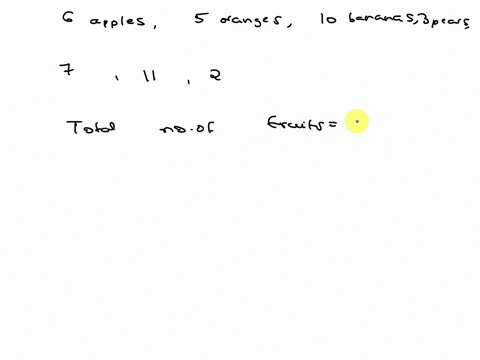 6 apples, 5 oranges, 10 bananas, 3 pears,
7 , 11 , 2
Total no.of fruits=